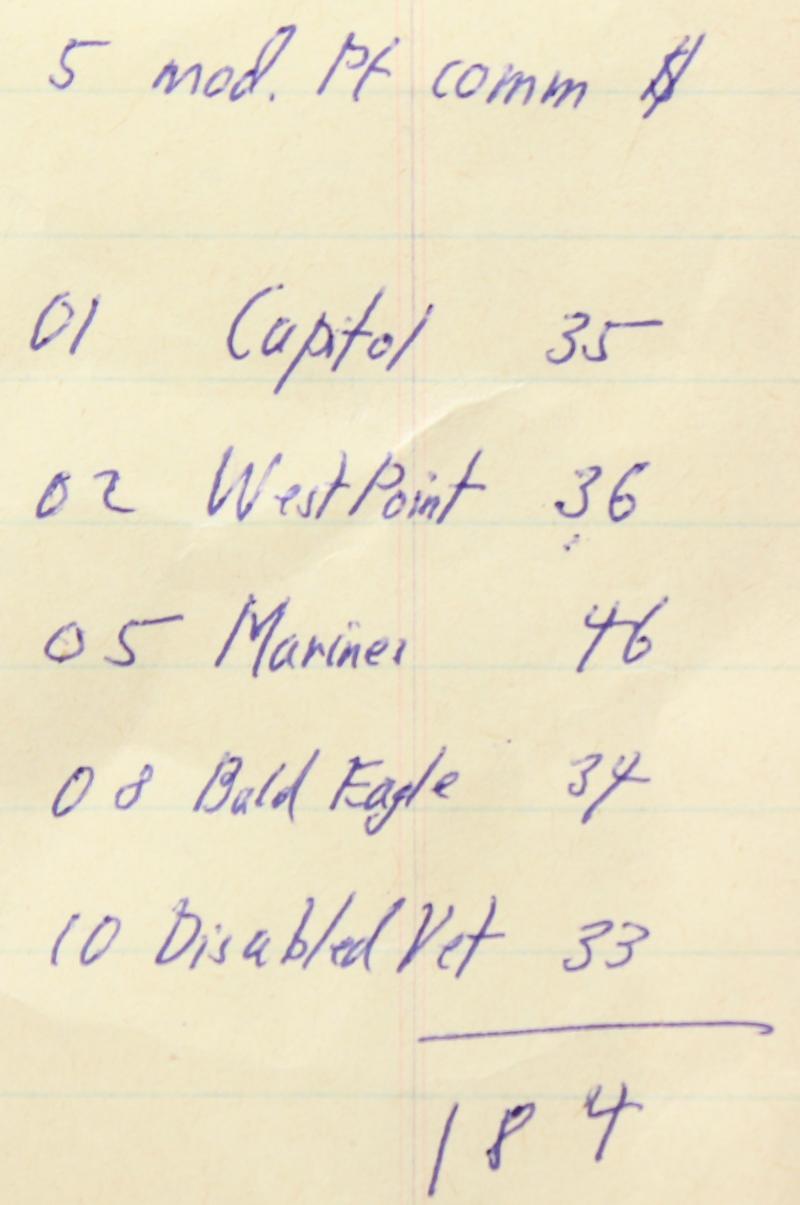 5 mod. Pf comm $
01 Capitol 35
02 West Point 36
05 Marines 46
08 Bald Eagle 34
10 Disabled Vet 33
184